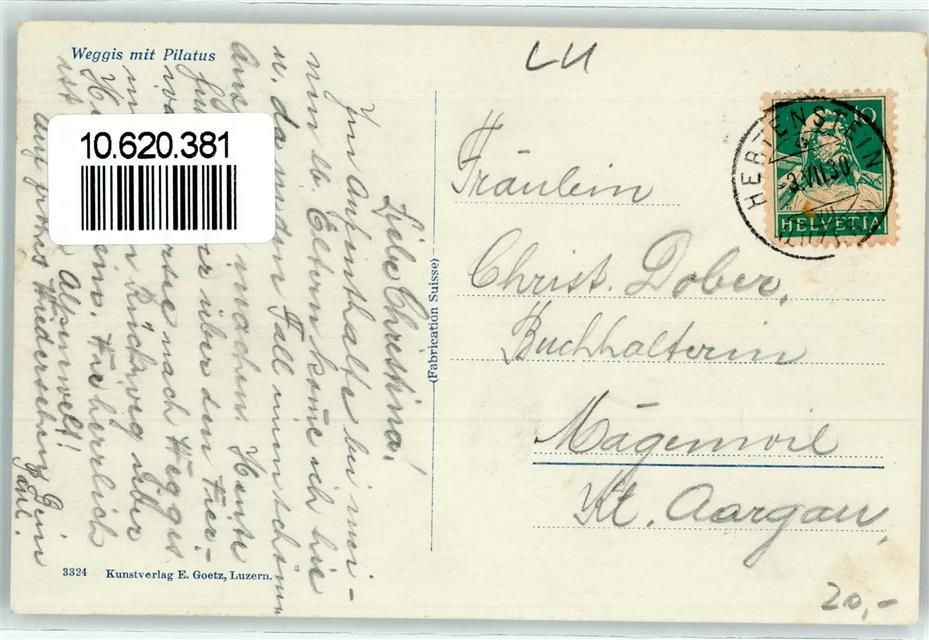 Weggis mit Pilatus
LU
10.620.381
10
HELVETIA
HERTENSTEIN
3.VII.30
Liebe Christina!
Im Aufenthalte bei mei-
nen lb. Eltern kome ich hie
u. da in den Fall einen schönen
Ausflug machen. Heute
über den Vier-
nach Weggis
Rückweg über
Die herrlich
ist Alpenwelt!
Auf frohes Wiedersehen! Dein
Paul.
Fräulein
Christ. Dober,
Buchhalterin
Mägenwil
Kt. Aargau,
(Fabrication Suisse)
3324 Kunstverlag E. Goetz, Luzern.
20,-